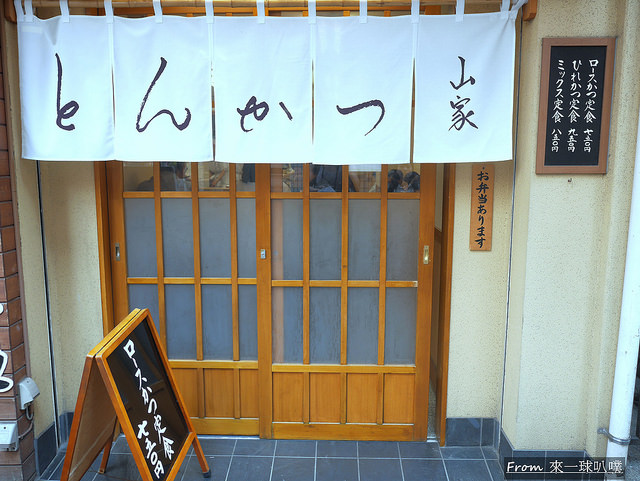 とんかつ
山家
ロースかつ定食 七五〇円
ひれかつ定食 九五〇円
ミックス定食 八五〇円
お弁当あります
ロースかつ定食
七五〇円
From 來一球叭噗